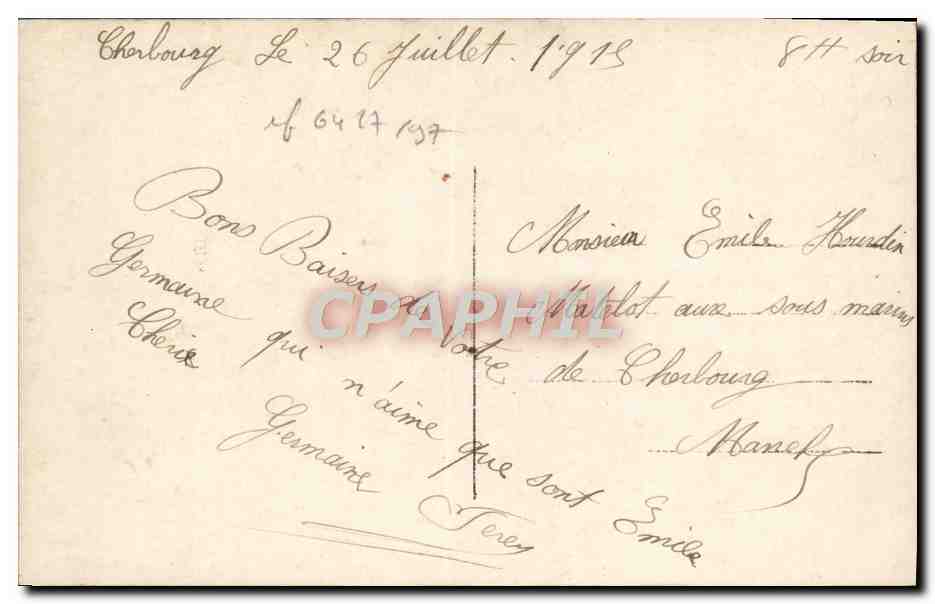 Cherbourg Le 26 Juillet. 1915 8H soir
6427197
Bons Baisers de Votre
Germaine qui n'aime que sont Emile
Cherie
Germaine
Monsieur Emile Hourdin
Matelot aux sous marins
de Cherbourg
CPAPHIL